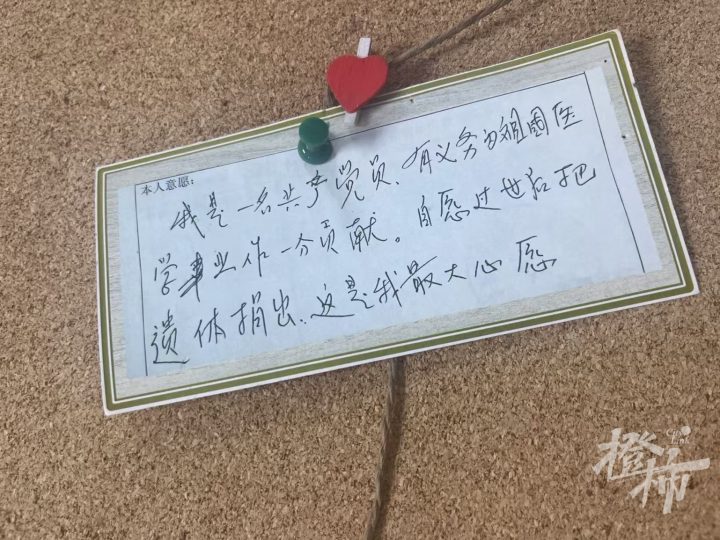 本人意愿：
我是一名共产党员、有义务为祖国医
学事业作一分贡献。自愿过世后把
遗体捐出、这是我最大心愿
City Link
橙柿